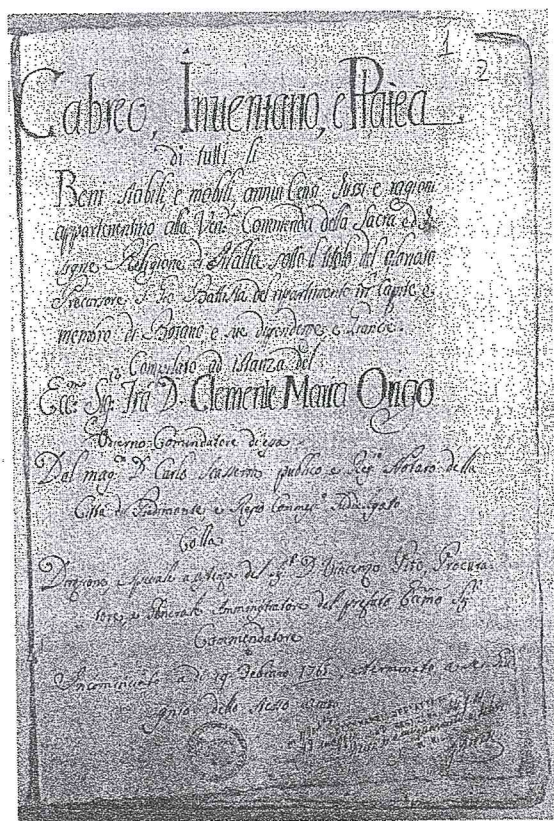 1
2
Cabreo, Inventario, e Platea
di tutti li
Beni stabili, e mobili, annui Censi, Jussi e ragioni
appartenentino alla Ven: Commenda della Sacra ed In
signe Religione di Malta sotto il titolo del glorioso
Precursore S: Gio Batista del ripartimento in Capite e
membro di Boiano e sue dipendenze e Grancie.
Compilato ad istanza del
Ecc: Sig: Frà D. Clemente Maria Origo
Odierno Comendatore di essa
Dal mag: D. Carlo publico e Reg: Notaro della
Città di Piedimonte e Regio Commes:
Colla
Direzione, speciale del D. Vincenzo Pirò, Procura
tore, e Generale Amministratore del prefato Eccmo Sig:
Commendatore
Incominciato a di 19 Febraro 1765, e terminato a
gnio dello stesso anno